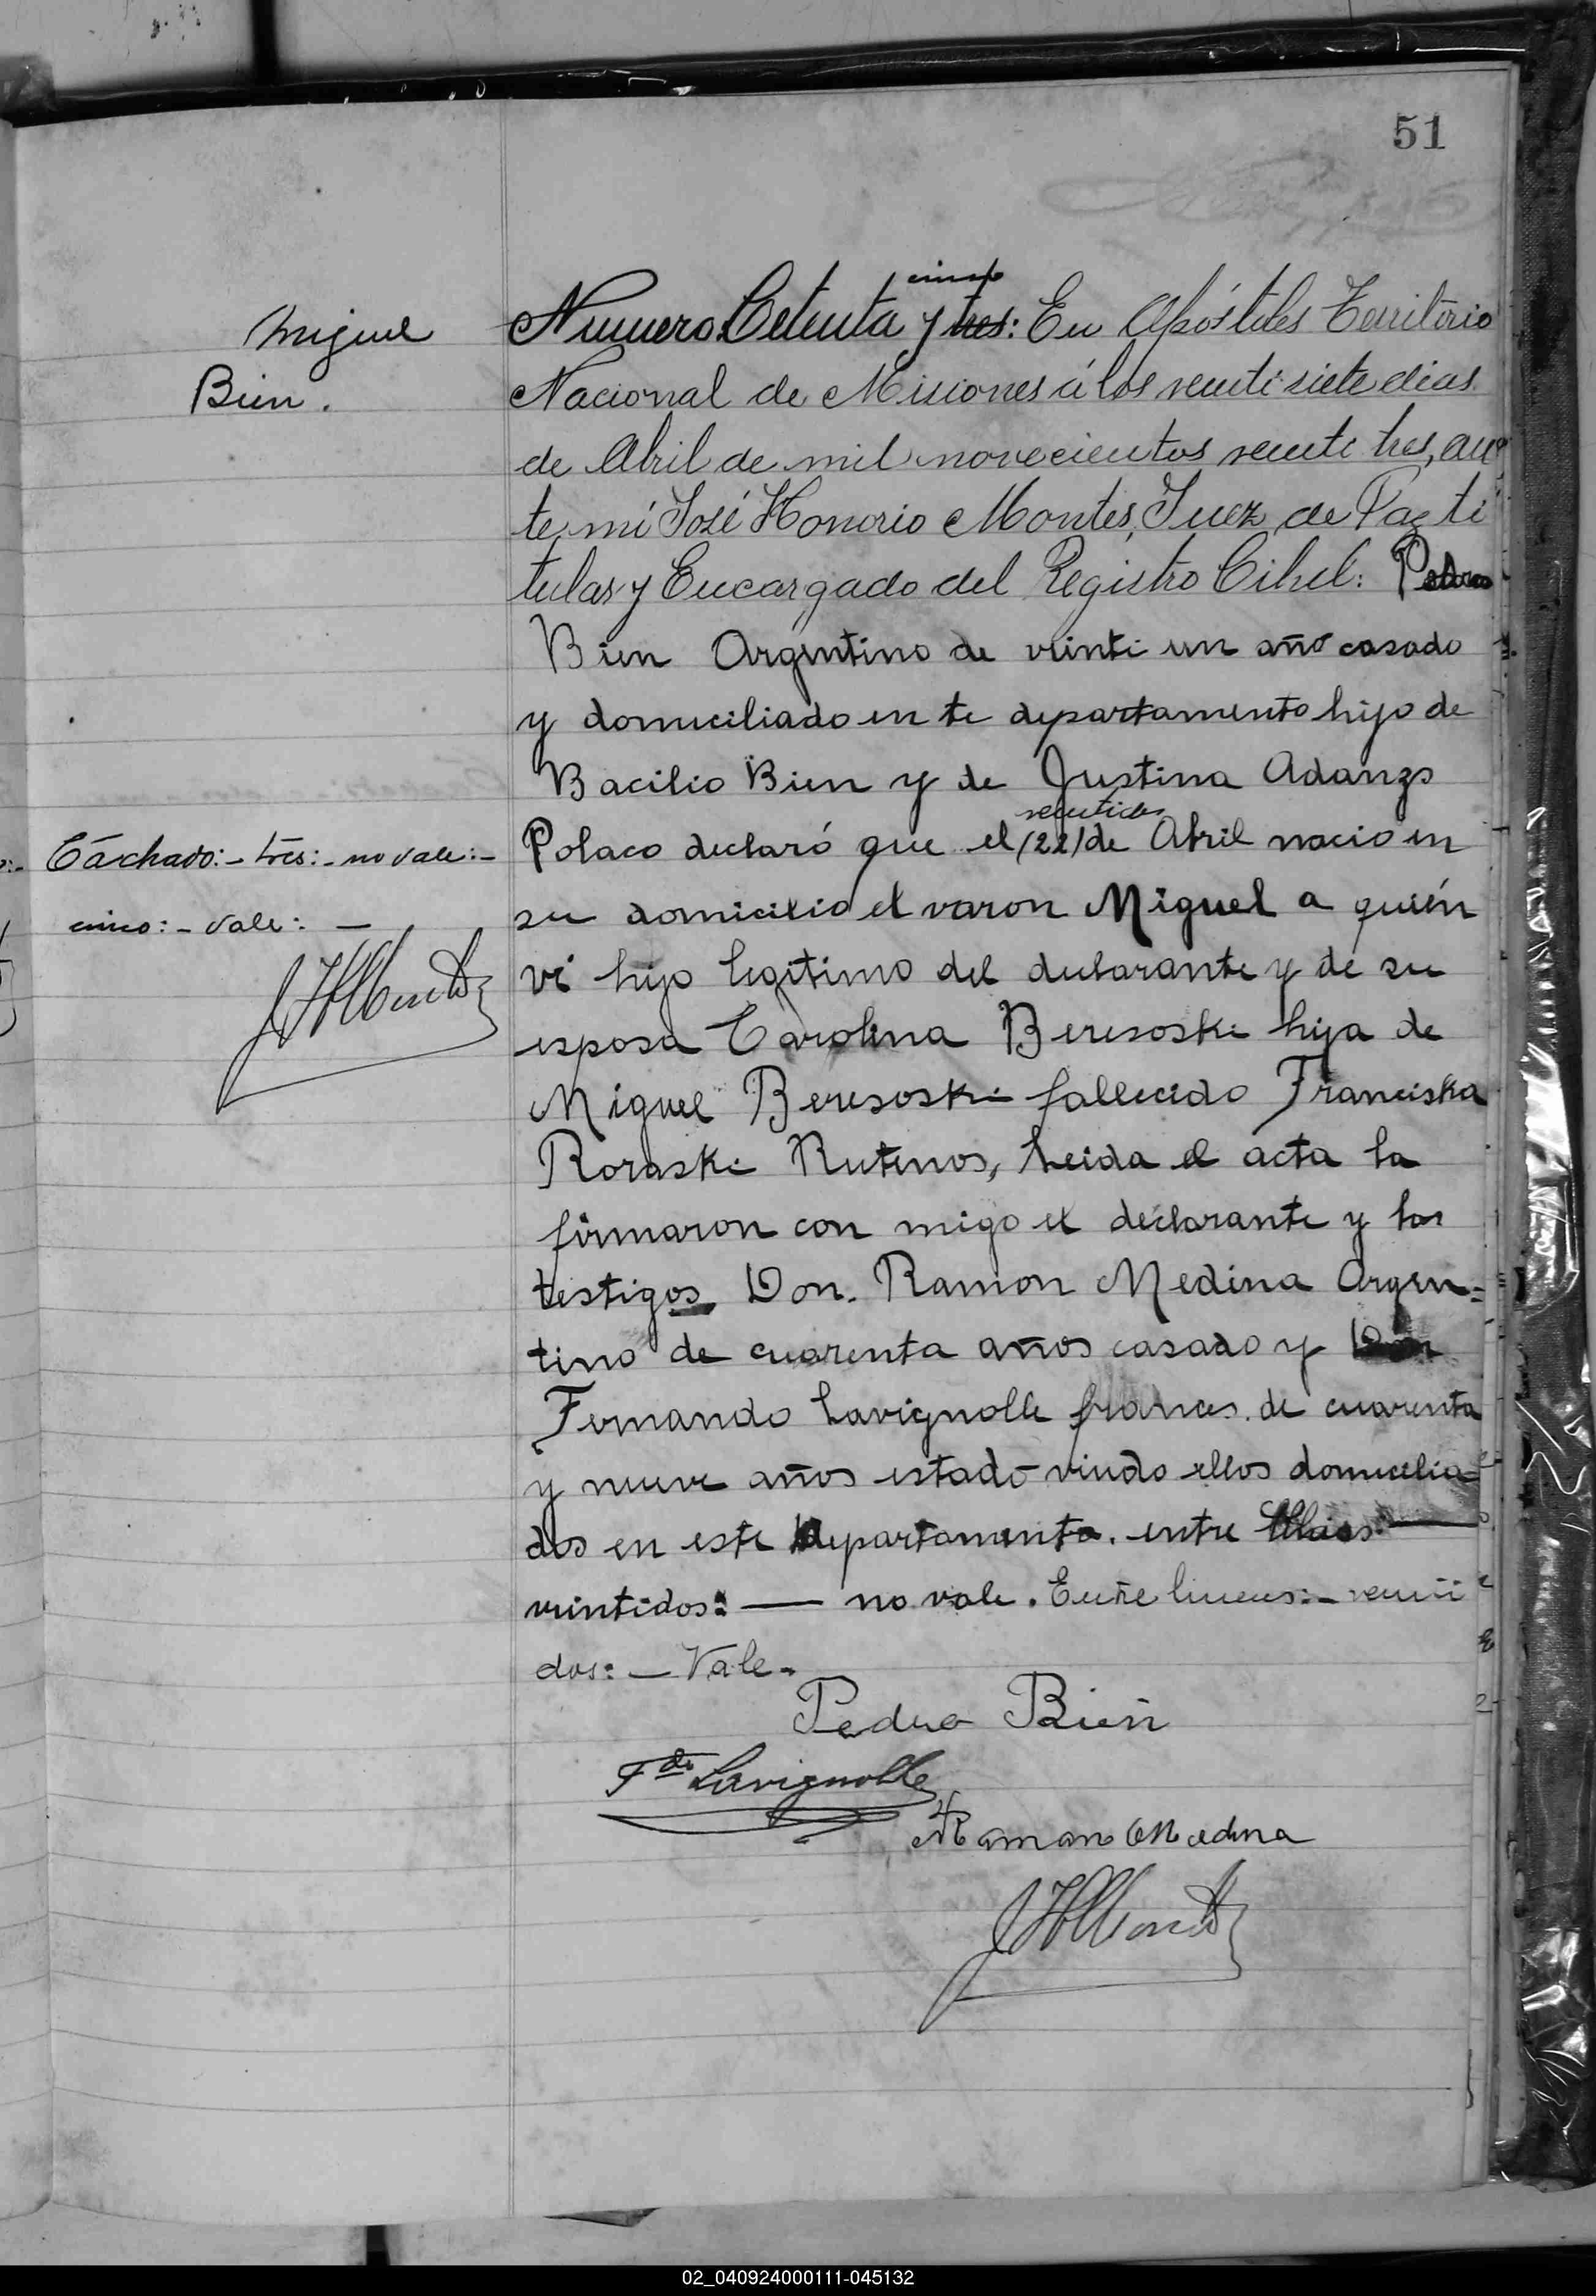 51
Miguel
Bien.
cinco
Numero Cetenta y tres: En Apóstoles Territorio
Nacional de Misiones á los veinti siete dias
de Abril de mil novecientos veinte tres, an
te mi José Honorio Montes, Juez de Paz ti
tular y Encargado del Registro Cibil: Pedro
Bien Argentino de veinti un año casado
y domiciliado en te departamento hijo de
Bacilio Bien y de Justina Adanzo
veintidos
Polaco declaró que el (22) de Abril nacio en
su domicilio el varon Miguel a quién
vi hijo legitimo del declarante y de su
esposa Carolina Beresoski hija de
Miguel Beresoski fallecido Franciska
Roraski Rutenos, Leida el acta la
firmaron con migo el declarante y los
testigos Don. Ramon Medina Argen=
tino de cuarenta años casado y Don
Fernando Lavignolle frances. de cuarenta
y nueve años estado viudo ellos domicilia=
dos en este departamento. entre
veintidos: — no vale. Entre lineas: - veinti
dos: — Vale.
Táchado: - tres: - no vale: -
cinco: - vale: —
JHMontes
Pedro Bien
Fdo Lavignolle
Raman Medina
JHMontes
02_040924000111-045132